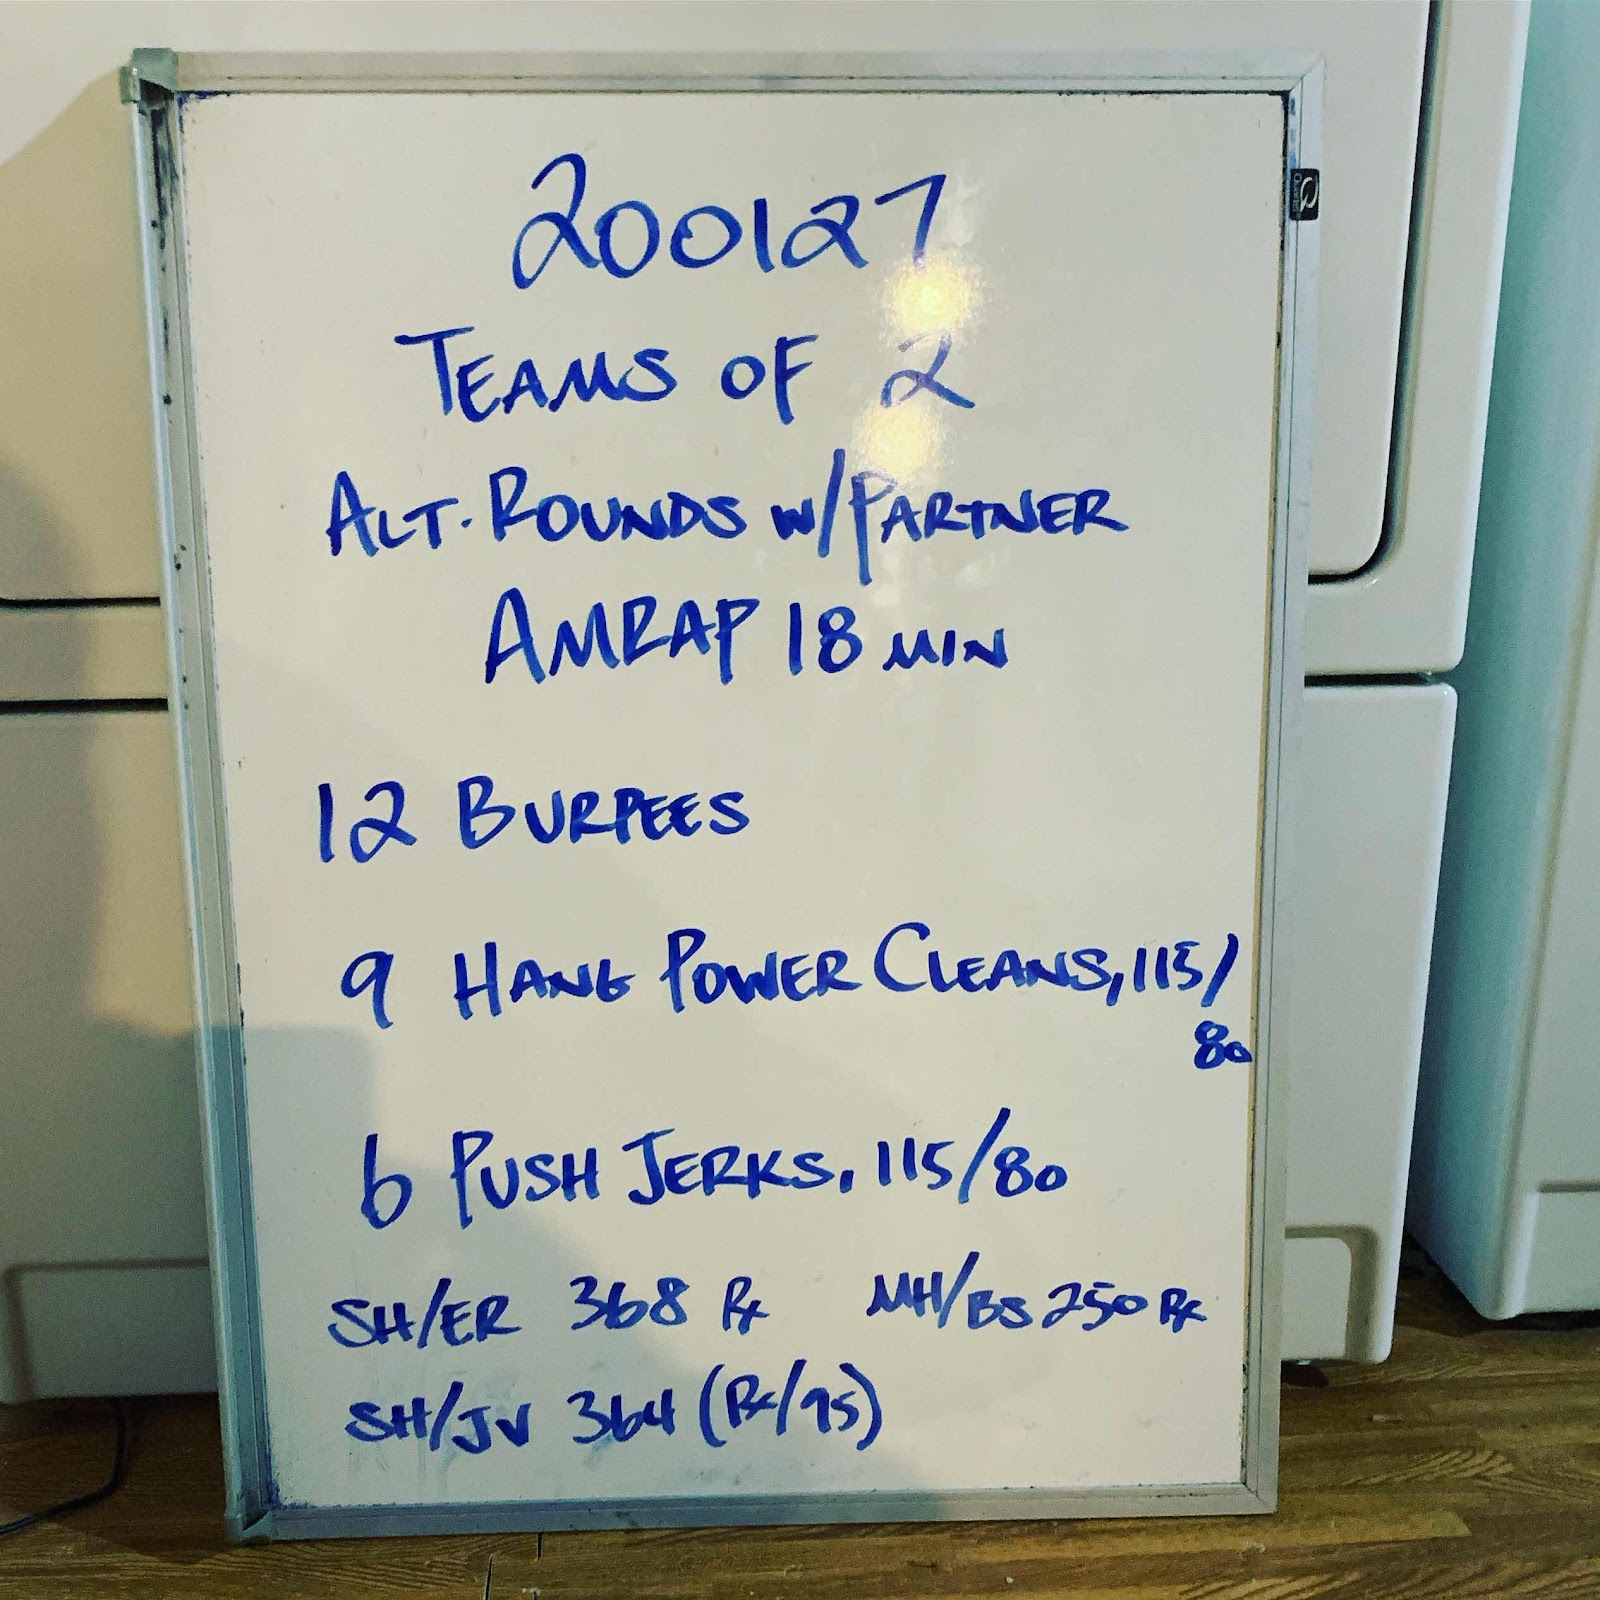 200127
TEAMS OF 2
ALT. ROUNDS W/PARTNER
AMRAP 18 MIN
12 BURPEES
9 HANG POWER CLEANS, 115/
80
6 PUSH JERKS, 115/80
SH/ER 368 Rx MH/BS 250 Rx
SH/JV 364 (Rx/95)